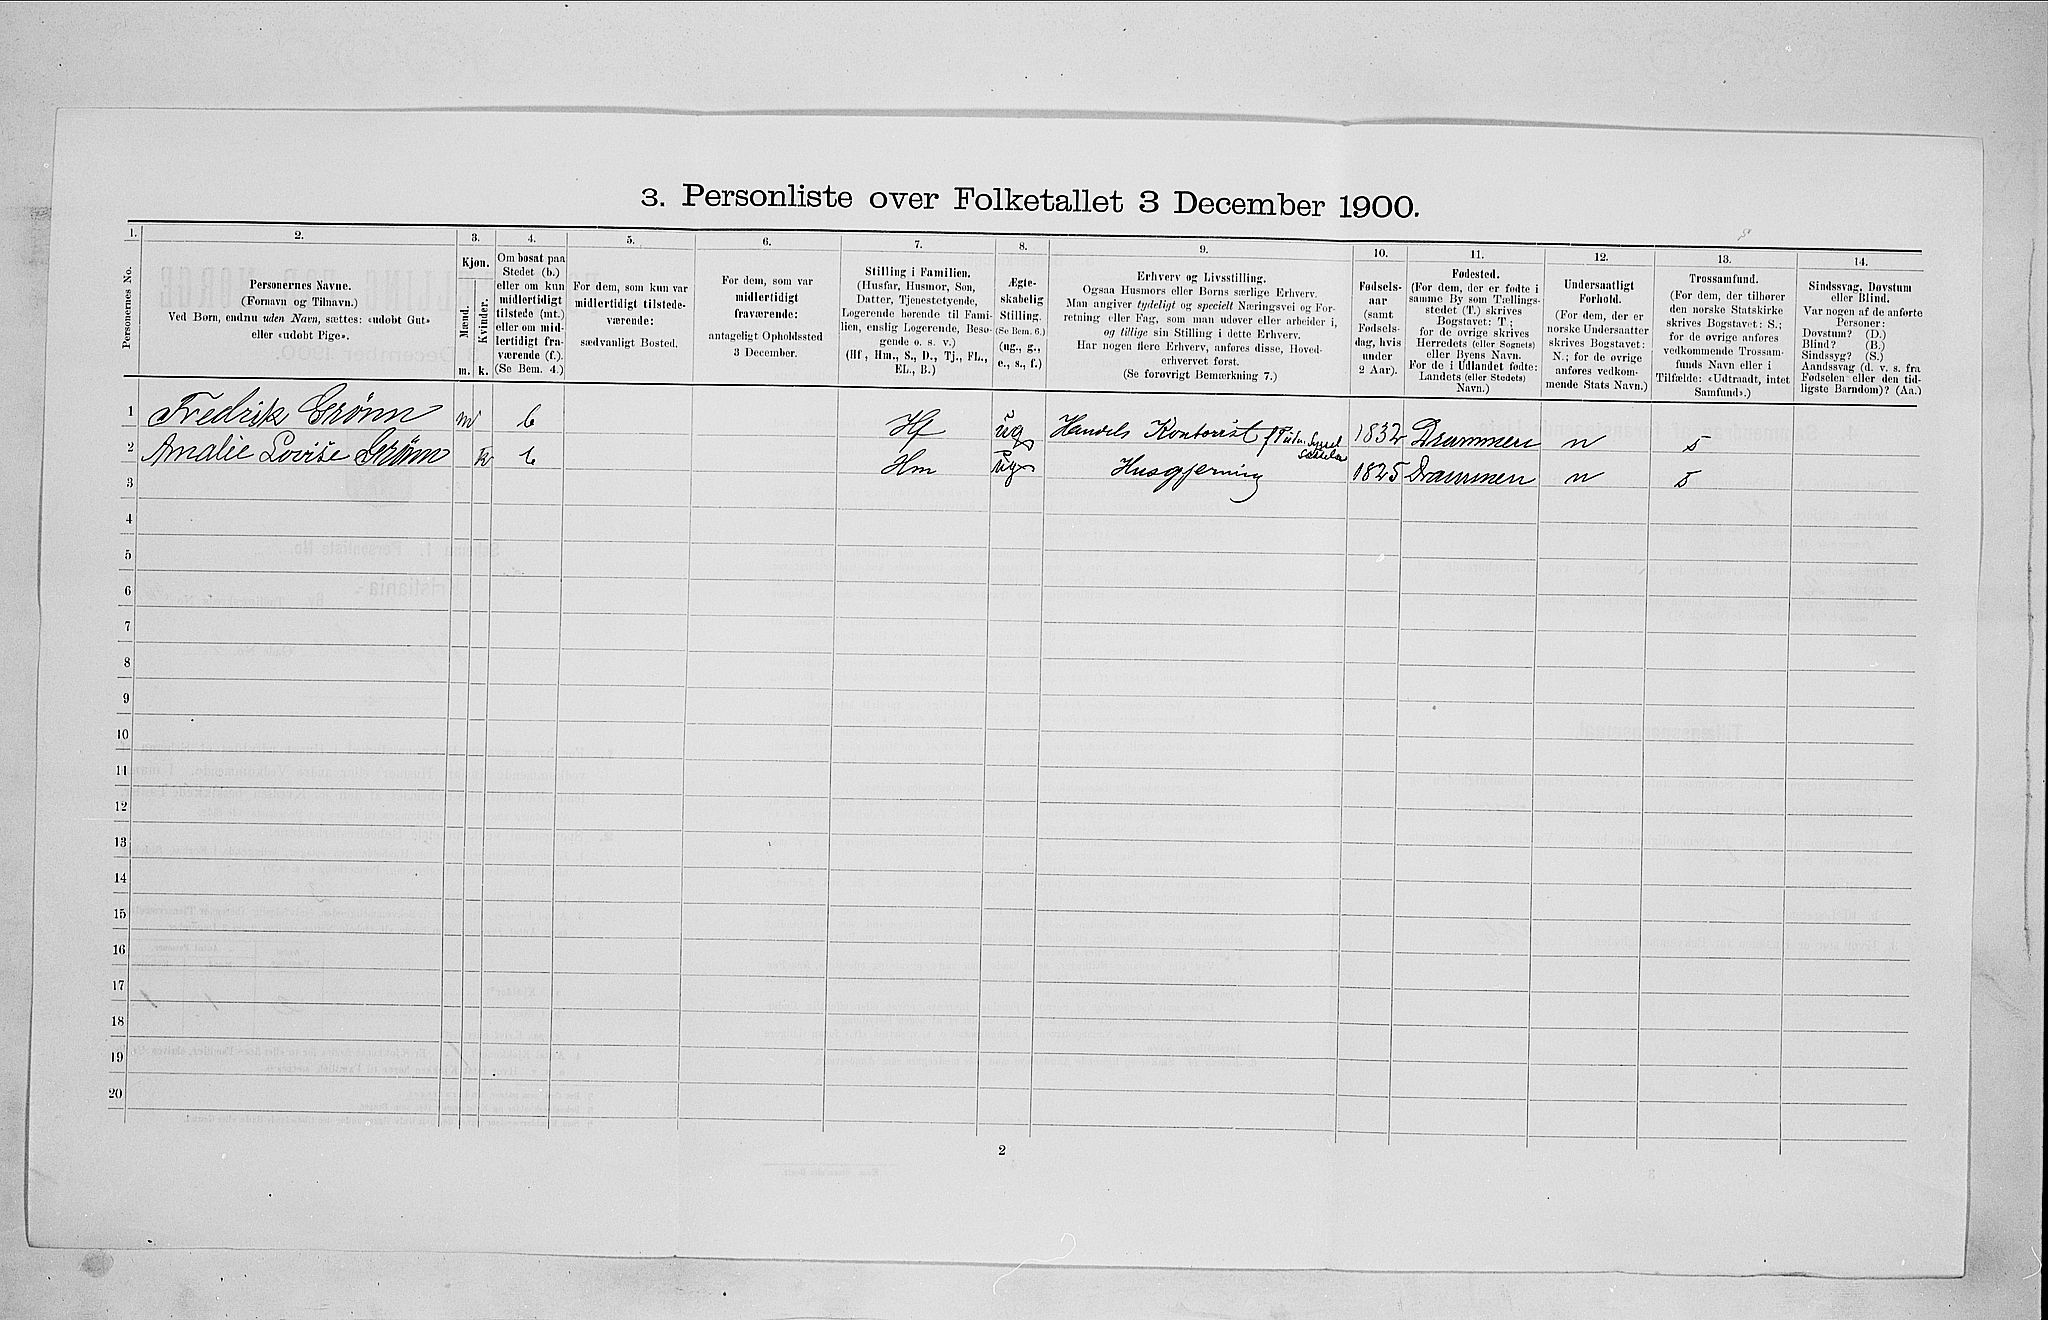 3. Personliste over Folketallet 3 December 1900.
1. 2. 3. 4. 5. 6. 7. 8. 9. 10. 11. 12. 13. 14.
Personernes No.
Personernes Navne.
(Fornavn og Tilnavn.)
Ved Børn, endnu uden Navn, sættes: «udøbt Gut»
eller «udøbt Pige».
Kjøn.
Mænd.
Kvinder.
m. k.
Om bosat paa
Stedet (b.)
eller om kun
midlertidigt
tilstede (mt.)
eller om mid-
lertidigt fra-
værende (f.).
(Se Bem. 4.)
For dem, som kun var
midlertidigt tilstede-
værende:
sædvanligt Bosted.
For dem, som var
midlertidigt
fraværende:
antageligt Opholdssted
3 December.
Stilling i Familien.
(Husfar, Husmor, Søn,
Datter, Tjenestetyende,
Logerende hørende til Fami-
lien, enslig Logerende, Besø-
gende o. s. v.)
(Hf., Hm., S., D., Tj., FL.,
EL., B.)
Ægte-
skabelig
Stilling.
(Se Bem. 6.)
(ug., g.,
e., s., f.)
Erhverv og Livsstilling.
Ogsaa Husmors eller Børns særlige Erhverv.
Man angiver tydeligt og specielt Næringsvei og For-
retning eller Fag, som man udøver eller arbeider i,
og tillige sin Stilling i dette Erhverv.
Har nogen flere Erhverv, anføres disse, Hoved-
erhvervet først.
(Se forøvrigt Bemærkning 7.)
Fødsels-
aar
(samt
Fødsels-
dag, hvis
under
2 Aar).
Fødested.
(For dem, der er fødte i
samme By som Tællings-
stedet (T.) skrives
Bogstavet: T.;
for de øvrige skrives
Herredets (eller Sognets)
eller Byens Navn.
For de i Udlandet fødte:
Landets (eller Stedets)
Navn.)
Undersaatligt
Forhold.
(For dem, der er
norske Undersaatter
skrives Bogstavet:
N.; for de øvrige
anføres vedkom-
mende Stats Navn.)
Trossamfund.
(For dem, der tilhører
den norske Statskirke
skrives Bogstavet: S.;
for de øvrige anføres
vedkommende Trossam-
funds Navn eller i
Tilfælde: «Udtraadt, intet
Samfund».)
Sindssvag, Døvstum
eller Blind.
Var nogen af de anførte
Personer:
Døvstum? (D.)
Blind? (B.)
Sindssyg? (S.)
Aandssvag (d. v. s. fra
Fødselen eller den tid-
ligste Barndom)? (Aa.)
1 Fredrik Grønn m b Hf ug Handels Kontorist 1832 Drammen n s
2 Amalie Lovise Grønn k b Hm ug Husgjerning 1825 Drammen n s
3
4
5
6
7
8
9
10
11
12
13
14
15
16
17
18
19
20
2